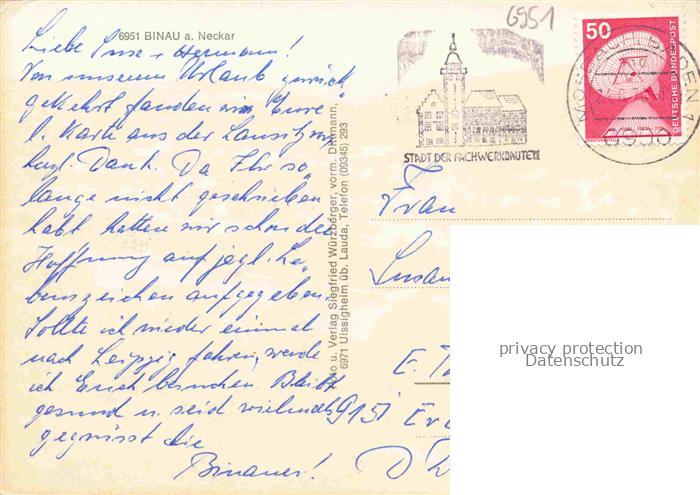 6951 BINAU a. Neckar
6951
50
DEUTSCHE BUNDESPOST
STADT DER FACHWERKBAUTEN
Foto u. Verlag Siegfried Würzberger, vorm. Dittmann,
6971 Uissigheim üb. Lauda, Telefon (09345) 293
Liebe Suse + Hermann!
Von unserem Urlaub zurück
gekehrt fanden wir Eure
l. Karte aus der Lausitz vor
hzl. Dank. Da Ihr so
lange nicht geschrieben
habt hatten wir schon die
Hoffnung auf jegl. Le-
benszeichen aufgegeben.
Sollte ich wieder einmal
nach Leipzig fahren, werde
ich Euch besuchen. Bleibt
gesund u. seid vielmals
gegrüsst die
Binauer!
Frau
Susan
E. T
9151
D
privacy protection
Datenschutz